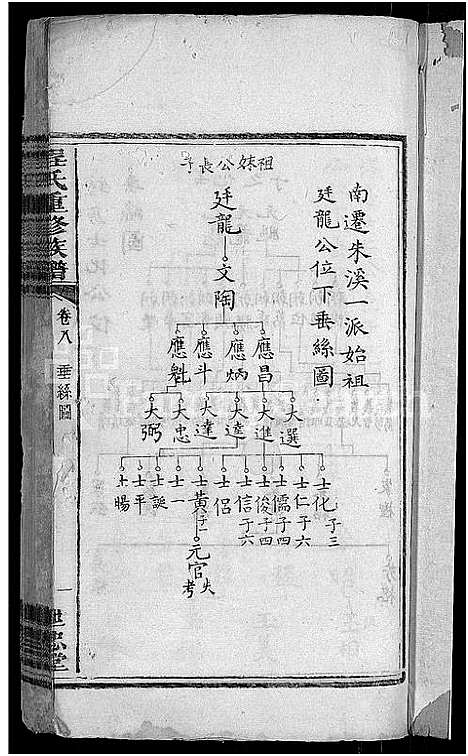 南遷朱溪一派始祖
廷龍公位下垂絲圖
祖妹公長子
廷龍
文陶
應昌
應炳
應斗
應魁
大選
大進
大逵
大達
大忠
大弼
士化 子三
士仁 子六
士儒 子四
士俊 子四
士信 子六
士侣
士黃 子一
士一
士誕
士平
士暘
元官 失考
程氏重修族譜
卷八
垂絲圖
一
世忠堂